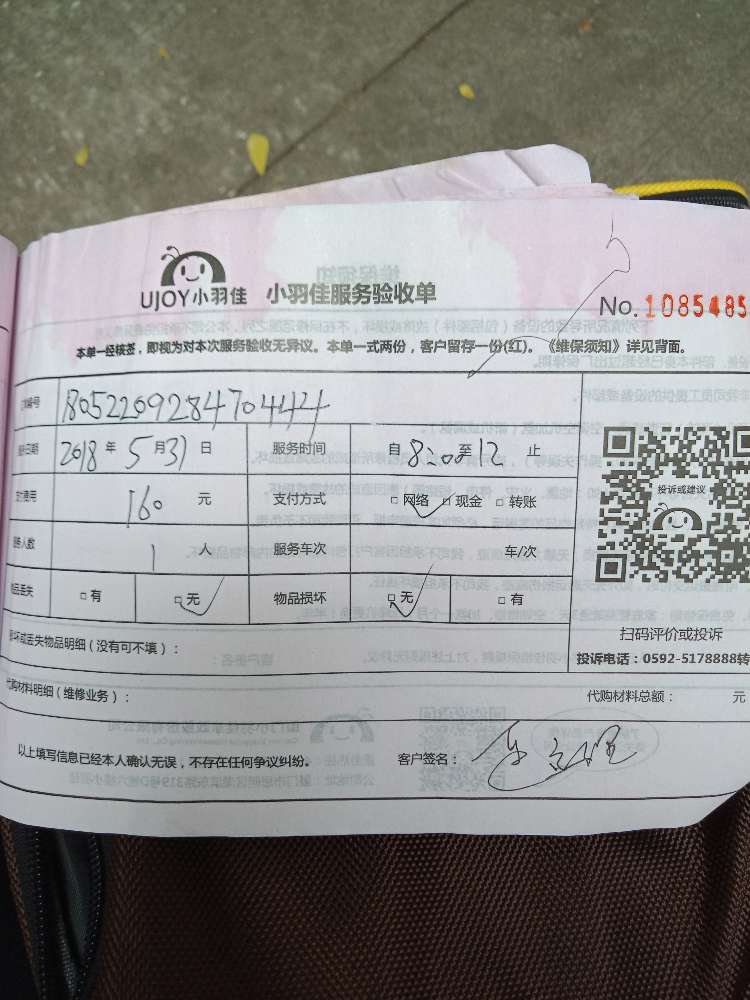 UJOY小羽佳 小羽佳服务验收单
No.1085485
本单一经核签，即视为对本次服务验收无异议。本单一式两份，客户留存一份(红)。《维保须知》详见背面。
编号 180522092847044
日期 2018 年 5 月 31 日 服务时间 自 8:00 至 12 止
费用 160 元 支付方式 □网络 □现金 □转账
人数 1 人 服务车次 车/次
物品丢失 □有 □无 物品损坏 □无 □有
投诉或建议
扫码评价或投诉
投诉电话：0592-5178888转
坏或丢失物品明细（没有可不填）：
代购材料明细（维修业务）： 代购材料总额： 元
以上填写信息已经本人确认无误，不存在任何争议纠纷。 客户签名：